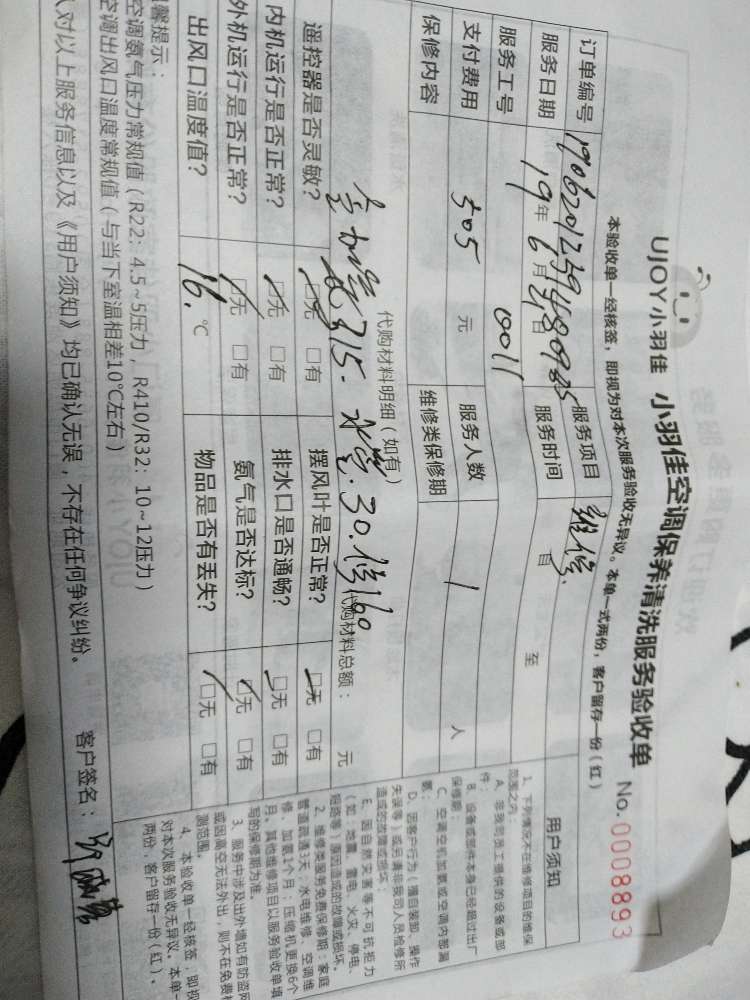 UJOY小羽佳 小羽佳空调保养清洗服务验收单 No.0008893
本验收单一经核签，即视为对本次服务验收无异议。本单一式两份，客户留存一份（红）
订单编号 服务项目 维修
服务日期 19年6月 日 服务时间 至
服务工号 0011 服务人数 1 人
支付费用 505 元 维修类保修期
保修内容
代购材料明细（如有） 代购材料总额： 元
315. 30. 160
遥控器是否灵敏？ □无 □有 摆风叶是否正常？ □无 □有
内机运行是否正常？ □无 □有 排水口是否通畅？ □无 □有
外机运行是否正常？ □无 □有 氨气是否达标？ □无 □有
出风口温度值？ 16. ℃ 物品是否有丢失？ □无 □有
馨提示：
空调氨气压力常规值（R22：4.5~5压力，R410/R32：10~12压力）
空调出风口温度常规值（与当下室温相差10℃左右）
人对以上服务信息以及《用户须知》均已确认无误，不存在任何争议纠纷。 客户签名：
用户须知
1、下列情况不在维修项目的维保
范围之内：
A、非我司员工提供的设备或部
件；
B、设备或部件本身已经超过出厂
保修期；
C、空调空机加氨或空调内部漏
氨；
D、因客户行为（擅自装卸、操作
失误等）或另请非我司人员检修所
造成的故障或损坏；
E、因自然灾害等不可抗拒力
（如：地震、雷电、火灾、停电、
短路等）原因造成的故障或损坏。
2、维修类服务免费保修期：家庭
管道疏通3天；水电维修、空调维
修、加氨1个月；压缩机更换6个
月。其他维修项目以服务验收单填
写的保修期为准。
3、服务中涉及出外墙如有防盗网
或因高空无法外出，则不在免费检
测范围。
4、本验收单一经核签，即视
对本次服务验收无异议。本单一
两份，客户留存一份（红）。